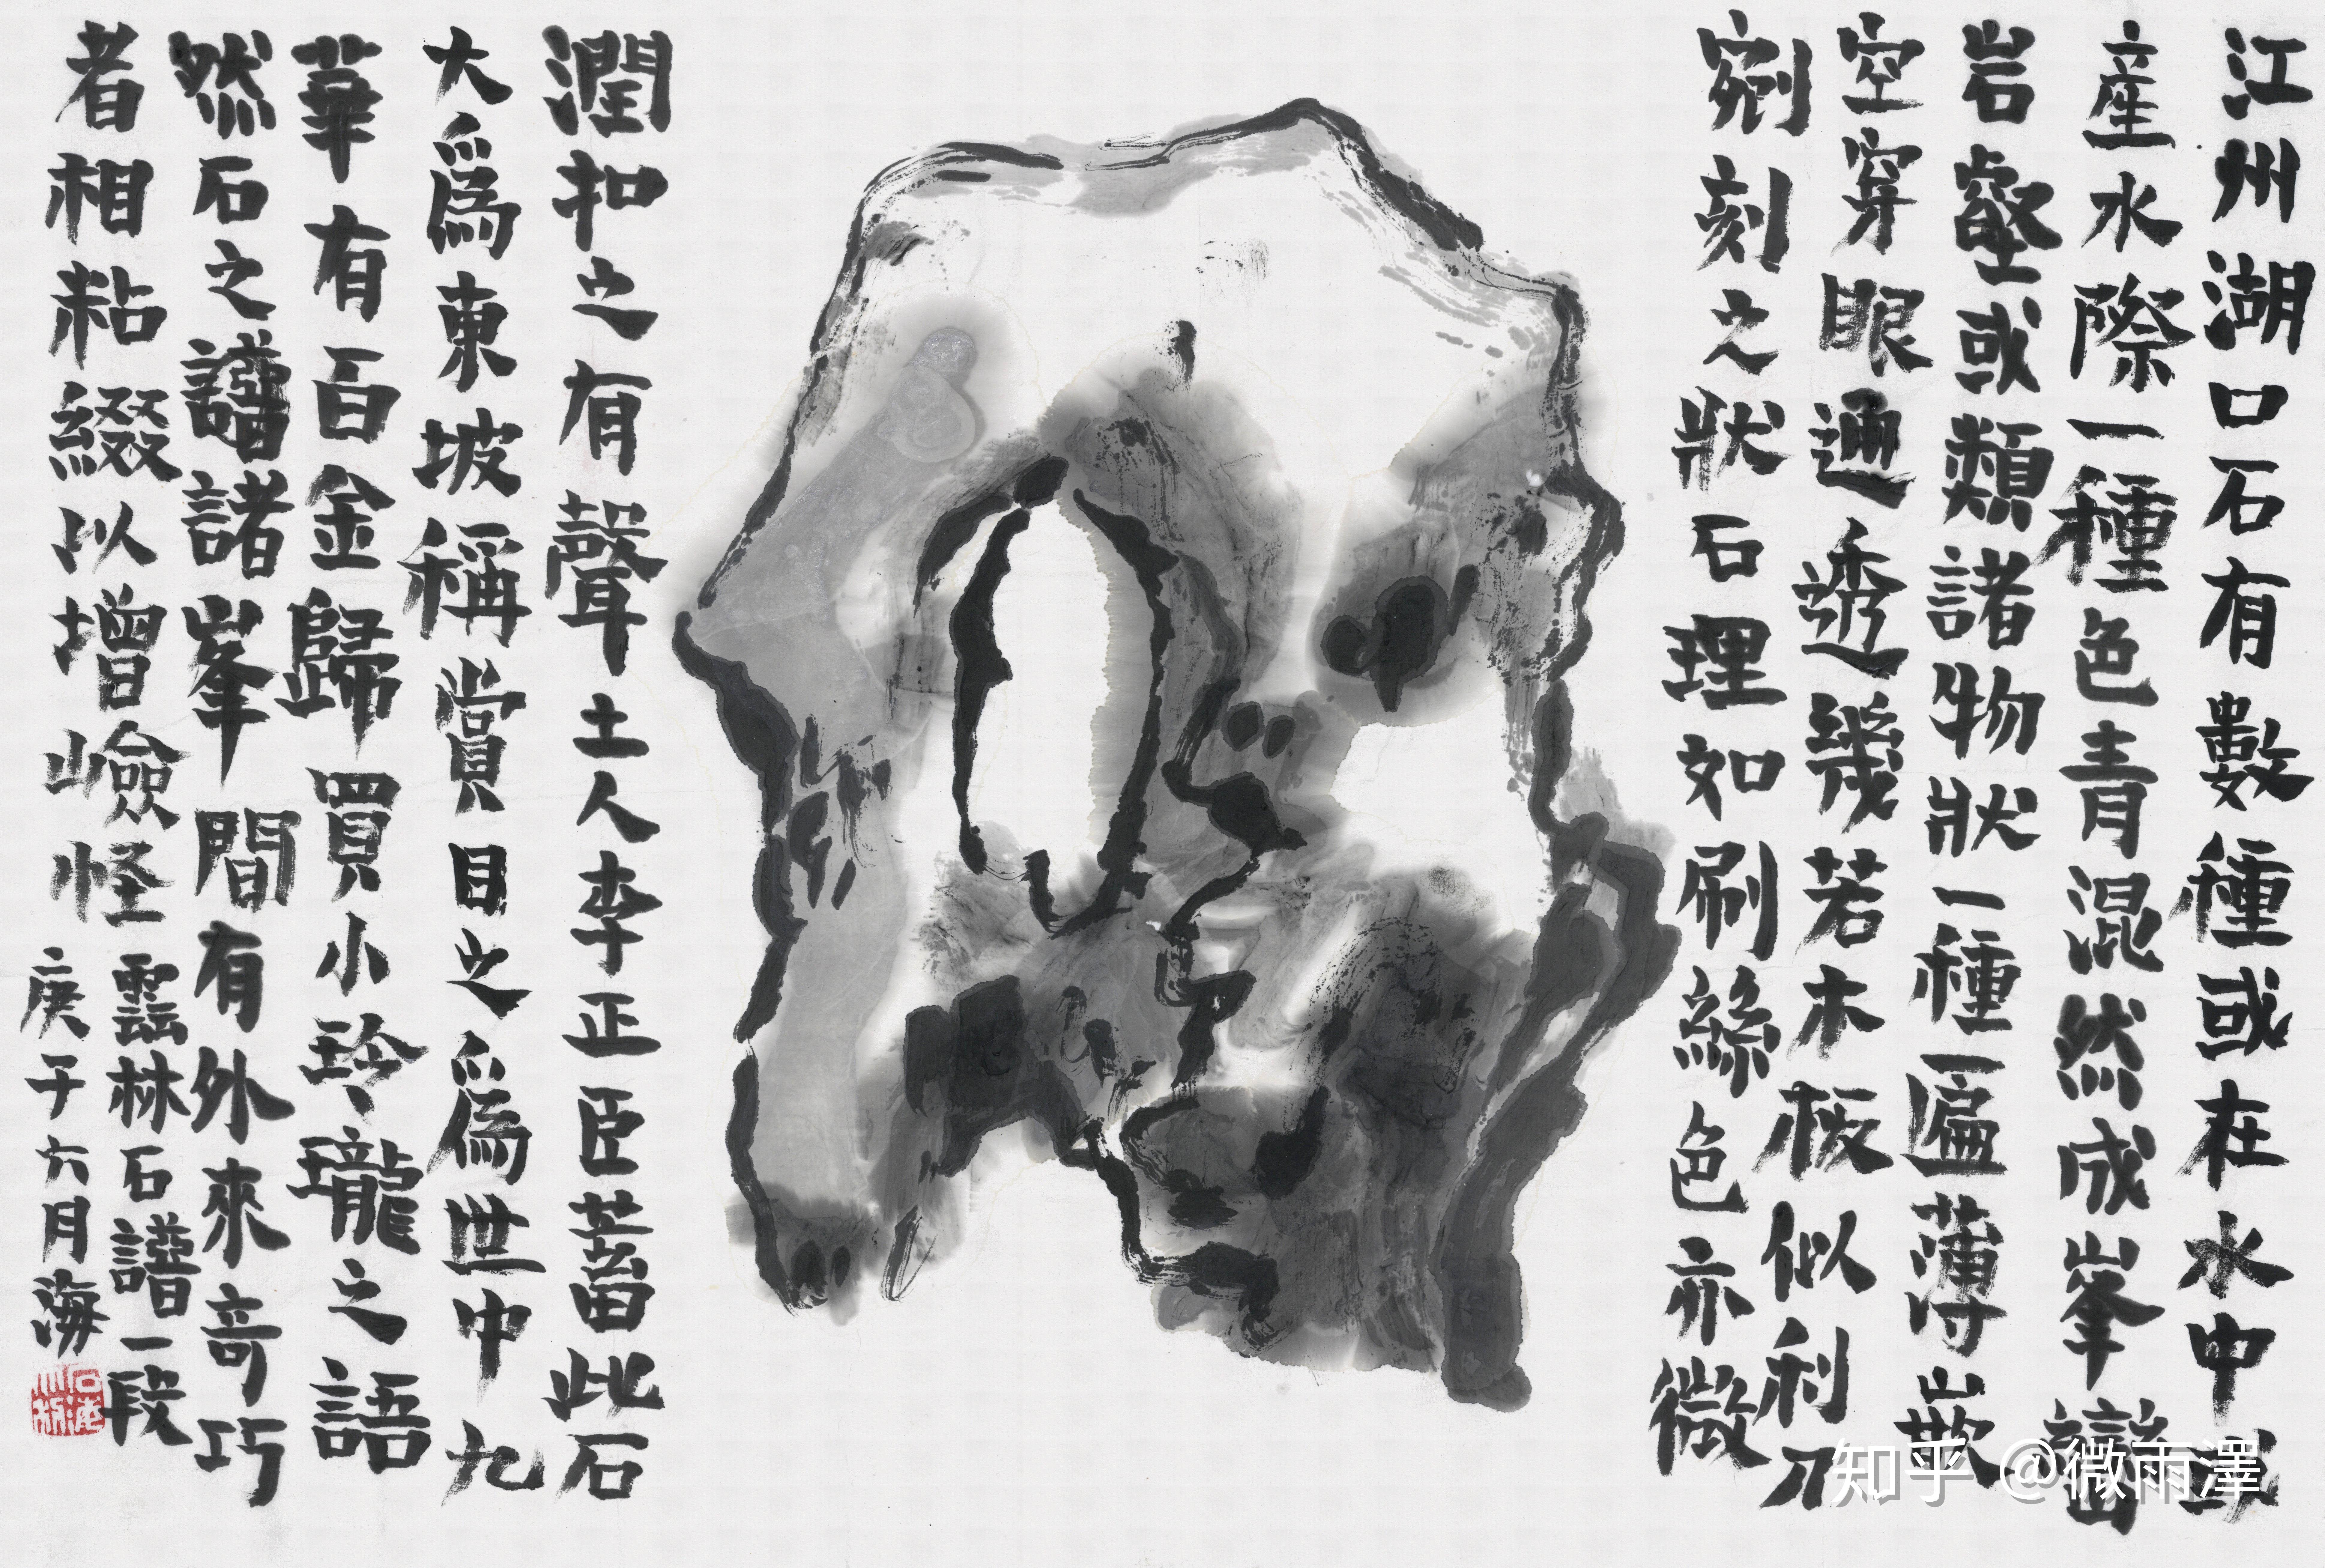 江州湖口石有數種或在水中或
産水際一種色青混然成峯巒
岩壑或類諸物狀一種匾薄嵌
空穿眼通透幾若木板似利刀
剜刻之狀石理如刷絲色亦微
潤扣之有聲土人李正臣蓄此石
大爲東坡稱賞目之爲世中九
華有百金歸買小玲瓏之語
然石之譜諸峯間有外來奇巧
者相粘綴以增嶮怪
雲林石譜一段
庚子六月海
知乎 @微雨澤